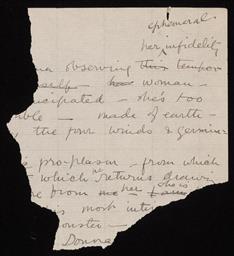 ephemeral
her infidelity
observing this tempor
woman -
icipated - she's too
ble - made of earth -
the four winds & germin
pro-plasm - from which
which he returns drawin
from me her she is
is most inte
onster -
Donna